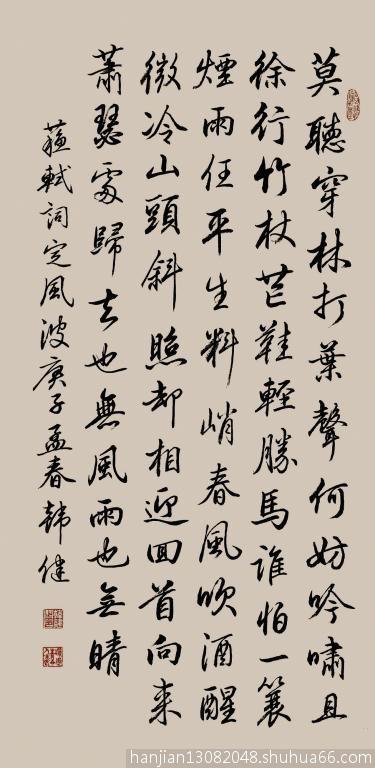 莫聽穿林打葉聲何妨吟嘯且
徐行竹杖芒鞋輕勝馬誰怕一蓑
煙雨任平生料峭春風吹酒醒
微冷山頭斜照却相迎回首向来
蕭瑟處歸去也無風雨也無晴
蘇軾詞定風波庚子孟春韩健
hanjian13082048.shuhua66.com